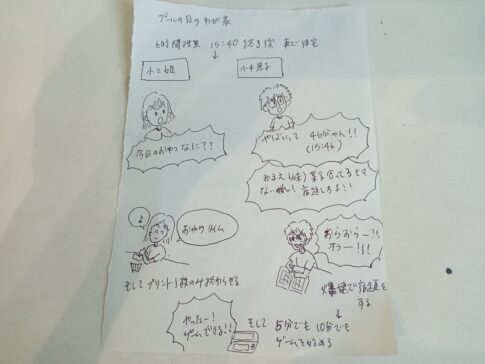 プールの日のわが家
6時間授業 15:40 終き後 車で帰宅
↓
小2娘
小4息子
今日のおやつなに?!
やばいって 46分やん!!
(15:46)
おまえ(妹)菓子食ってるヒマ
ない 宿題しろよ!!
♪
おやつタイム
おらおらー!!
オラー!!!
そしてプリント1枚のみ終わらせる
爆速で宿題を
する
↓
やったー!
ゲームできる!!
そして 5分でも 10分でも
ゲームを